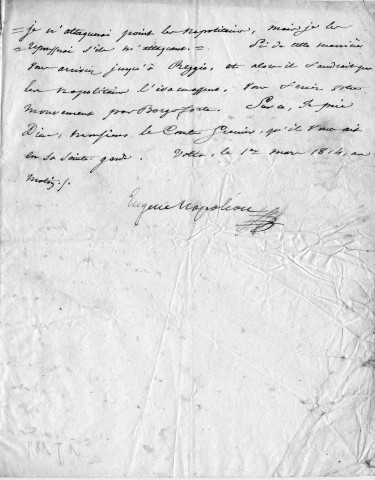 = je n'attaquerai point les napolitains, mais je les
repousserai s'ils m'attaquent. = Si de cette manière
vous arrivez jusqu'à Reggio, et alors il faudrait que
les napolitains l'évacuassent. Vous feriez votre
mouvement par Borgoforte. Sur ce, je prie
Dieu, monsieur le Comte Grenier, qu'il vous ait
en sa sainte garde. Volta, le 1er mars 1814, au
matin ./.
Eugène Napoléon